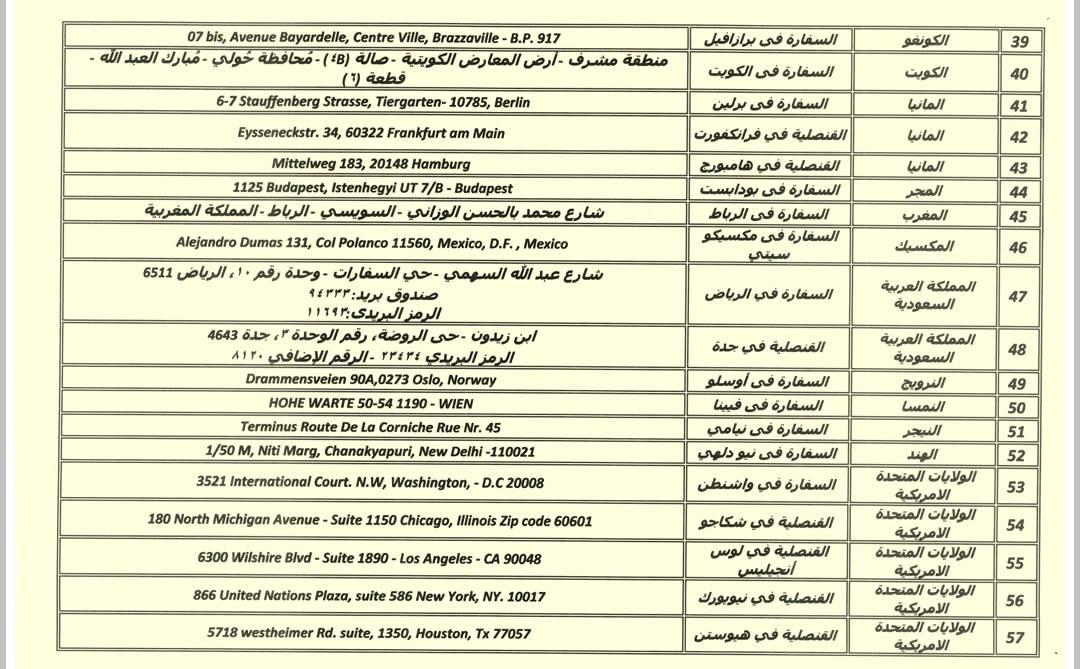 39 الكونغو السفارة فى برازافيل 07 bis, Avenue Bayardelle, Centre Ville, Brazzaville - B.P. 917
40 الكويت السفارة في الكويت منطقة مشرف - أرض المعارض الكويتية - صالة (٤B) - مُحافظة حَولي - مُبارك العبد الله -
قطعة (٦)
41 المانيا السفارة فى برلين 6-7 Stauffenberg Strasse, Tiergarten- 10785, Berlin
42 المانيا القنصلية في فرانكفورت Eysseneckstr. 34, 60322 Frankfurt am Main
43 المانيا القنصلية في هامبورج Mittelweg 183, 20148 Hamburg
44 المجر السفارة في بودابست 1125 Budapest, Istenhegyi UT 7/B - Budapest
45 المغرب السفارة فى الرباط شارع محمد بالحسن الوزاني - السويسي - الرباط - المملكة المغربية
46 المكسيك السفارة فى مكسيكو
سيتي Alejandro Dumas 131, Col Polanco 11560, Mexico, D.F. , Mexico
47 المملكة العربية
السعودية السفارة في الرياض شارع عبد الله السهمي - حي السفارات - وحدة رقم ١٠، الرياض 6511
صندوق بريد: ٩٤٣٣٣
الرمز البريدى: ١١٦٩٣
48 المملكة العربية
السعودية القنصلية في جدة ابن زيدون - حى الروضة، رقم الوحدة ٣، جدة 4643
الرمز البريدي ٢٣٤٣٤ - الرقم الإضافي ٨١٢٠
49 النرويج السفارة فى أوسلو Drammensveien 90A,0273 Oslo, Norway
50 النمسا السفارة فى فيينا HOHE WARTE 50-54 1190 - WIEN
51 النيجر السفارة فى نيامي Terminus Route De La Corniche Rue Nr. 45
52 الهند السفارة فى نيو دلهي 1/50 M, Niti Marg, Chanakyapuri, New Delhi -110021
53 الولايات المتحدة
الامريكية السفارة في واشنطن 3521 International Court. N.W, Washington, - D.C 20008
54 الولايات المتحدة
الامريكية القنصلية في شكاجو 180 North Michigan Avenue - Suite 1150 Chicago, Illinois Zip code 60601
55 الولايات المتحدة
الامريكية القنصلية في لوس
أنجيليس 6300 Wilshire Blvd - Suite 1890 - Los Angeles - CA 90048
56 الولايات المتحدة
الامريكية القنصلية في نيويورك 866 United Nations Plaza, suite 586 New York, NY. 10017
57 الولايات المتحدة
الامريكية القنصلية في هيوستن 5718 westheimer Rd. suite, 1350, Houston, Tx 77057